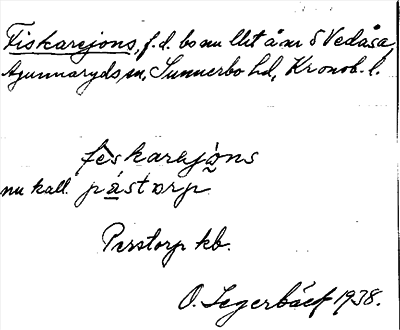 Fiskarejons, f.d. bonu llit å nr 8 Vedåsa,
Agunnaryds sn, Sunnerbo hd, Kronob. l.
feskarajòns
nu kall. pástorp
Perstorp kb.
O. Segerbäck 1938.